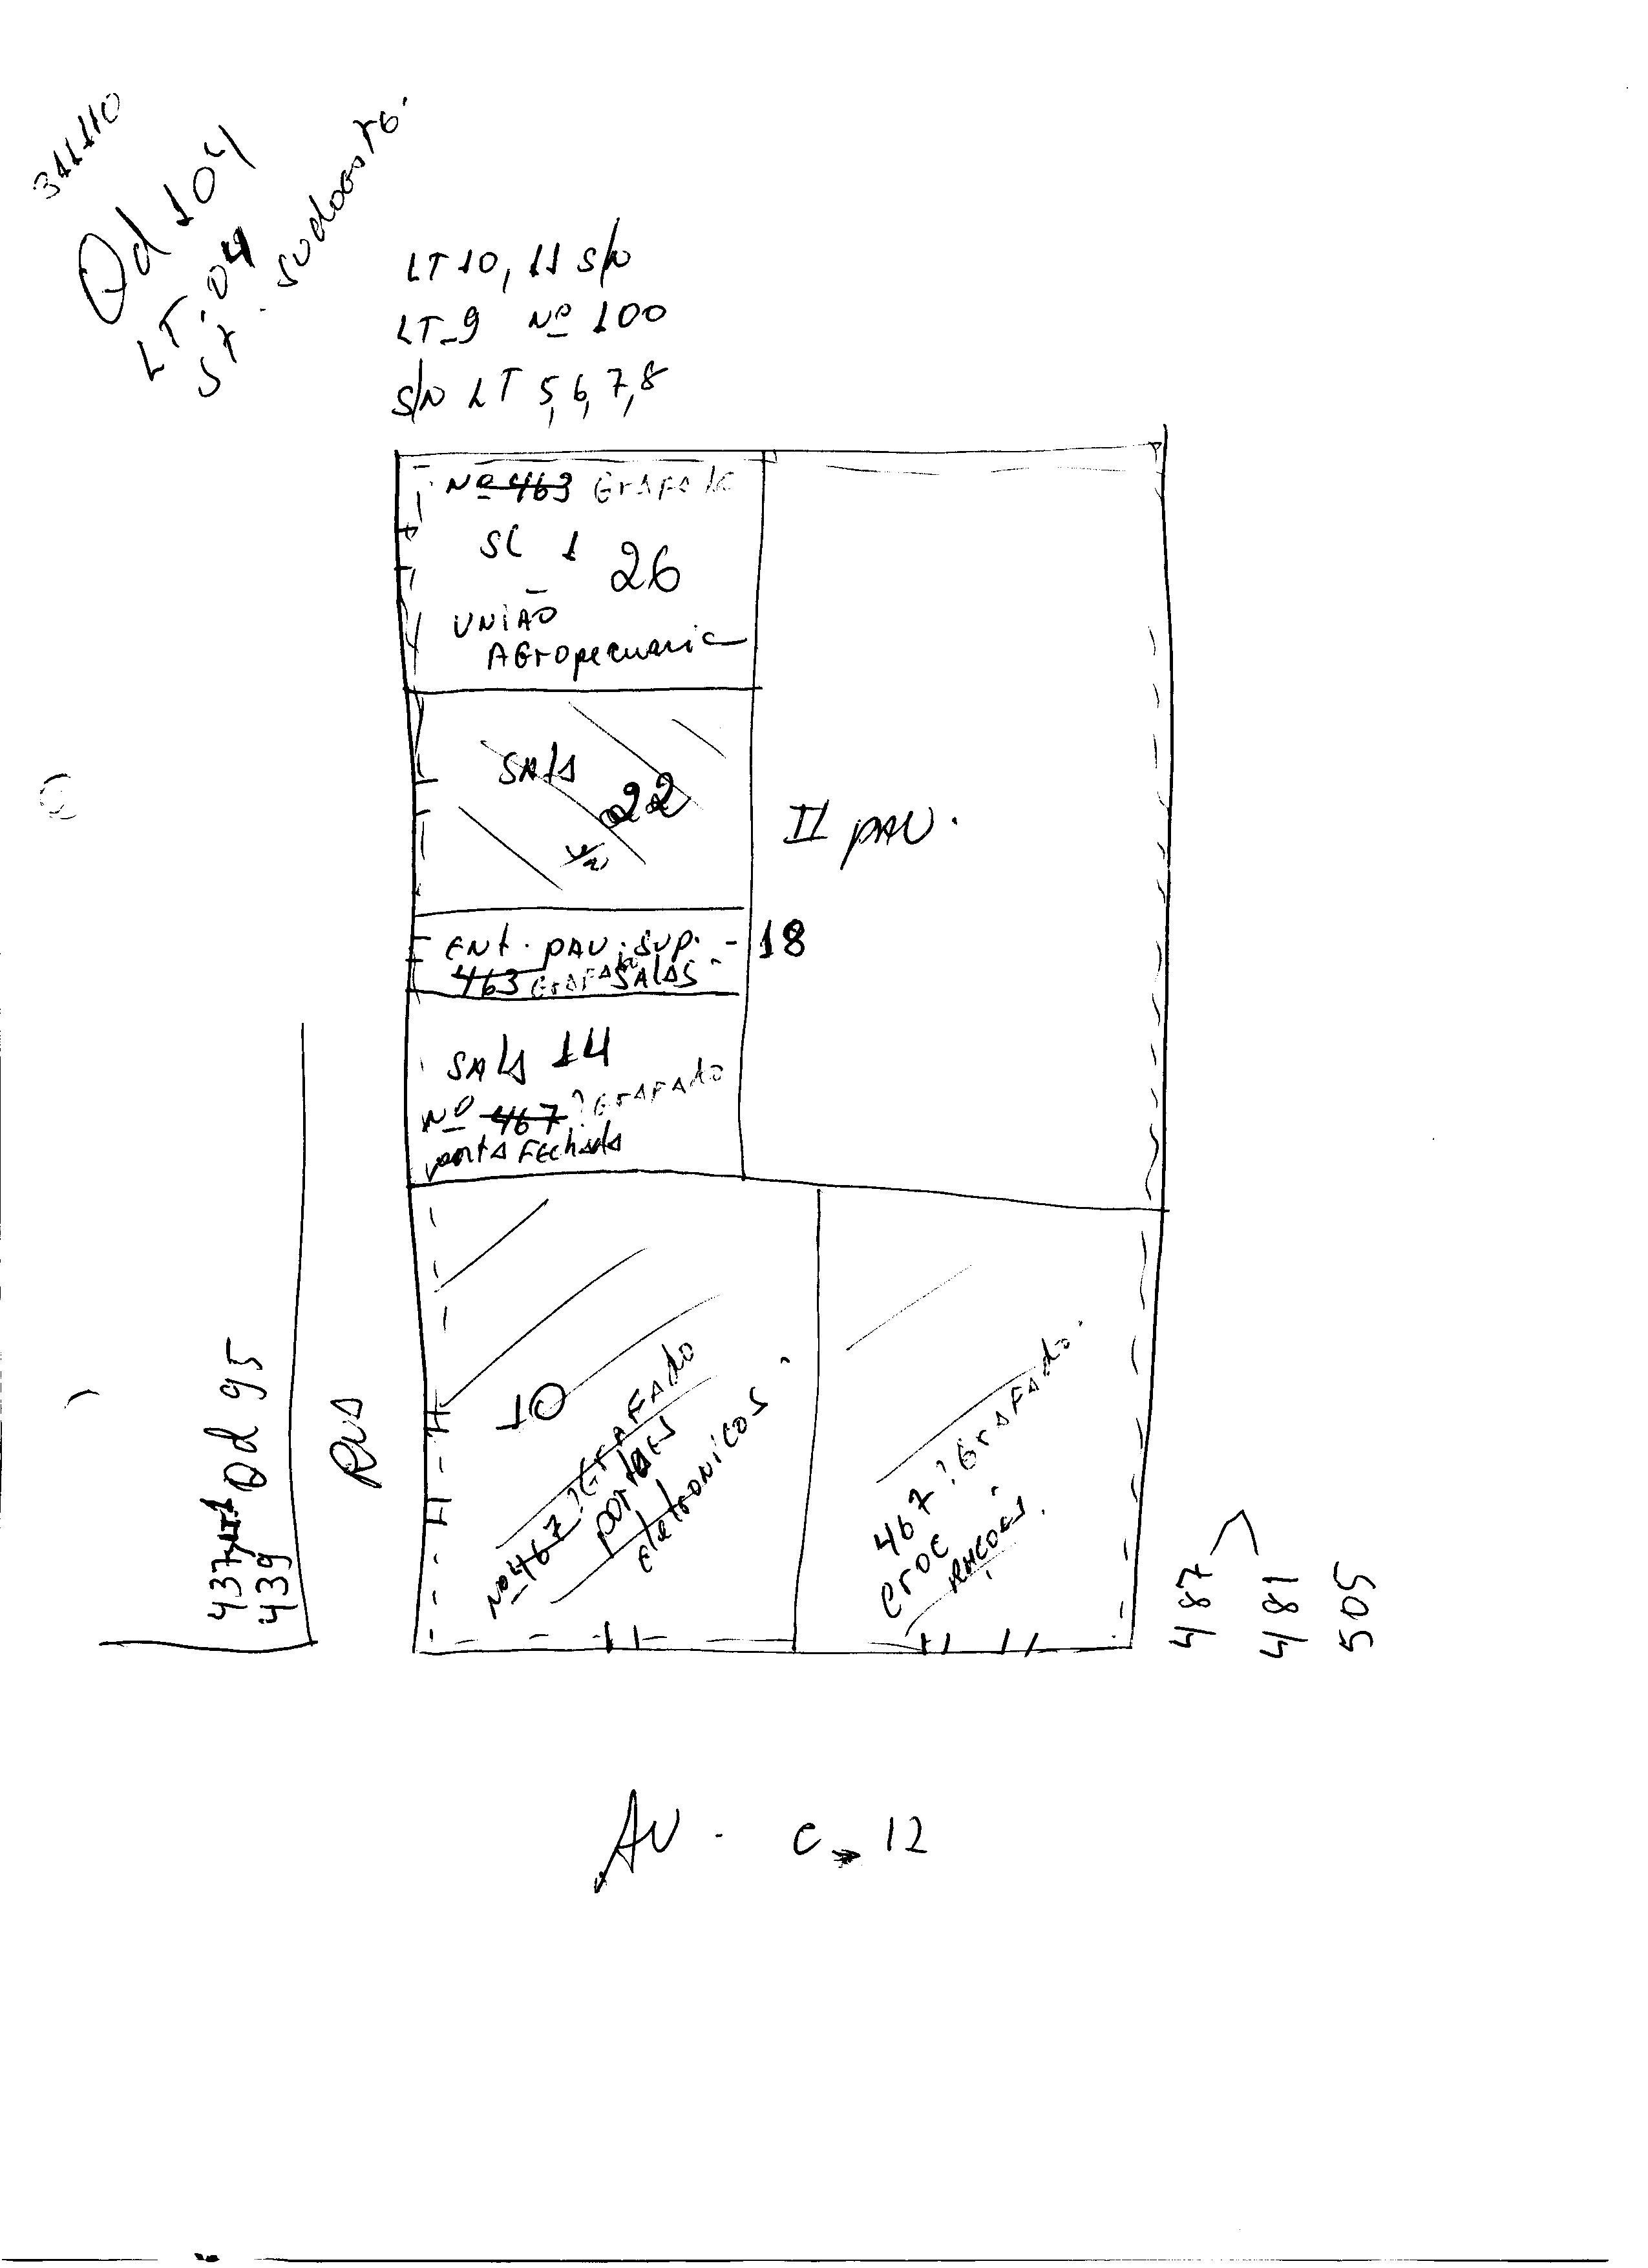 311110
Qd 104
LT. 04
ST. Sudoeste.
LT 10, 11 S/N
LT-9 Nº 100
S/N LT 5,6,7,8
Nº 463 Grafado
SL 1 26
UNIÃO
AGropecuaria
SALA
22
ENt. PAV. SUP. - 18
463 GrAFAdo SALAS
II PAV.
SALA 14
Nº 467 ? GrAFAdo
porta FEchada
10
Nº 467 ? GrAFAdo
portões
eletronicos.
467 ? GrAFAdo.
croc
RAÇões.
RUA
Qd 95
437
439
487
481
505
AV. C-12